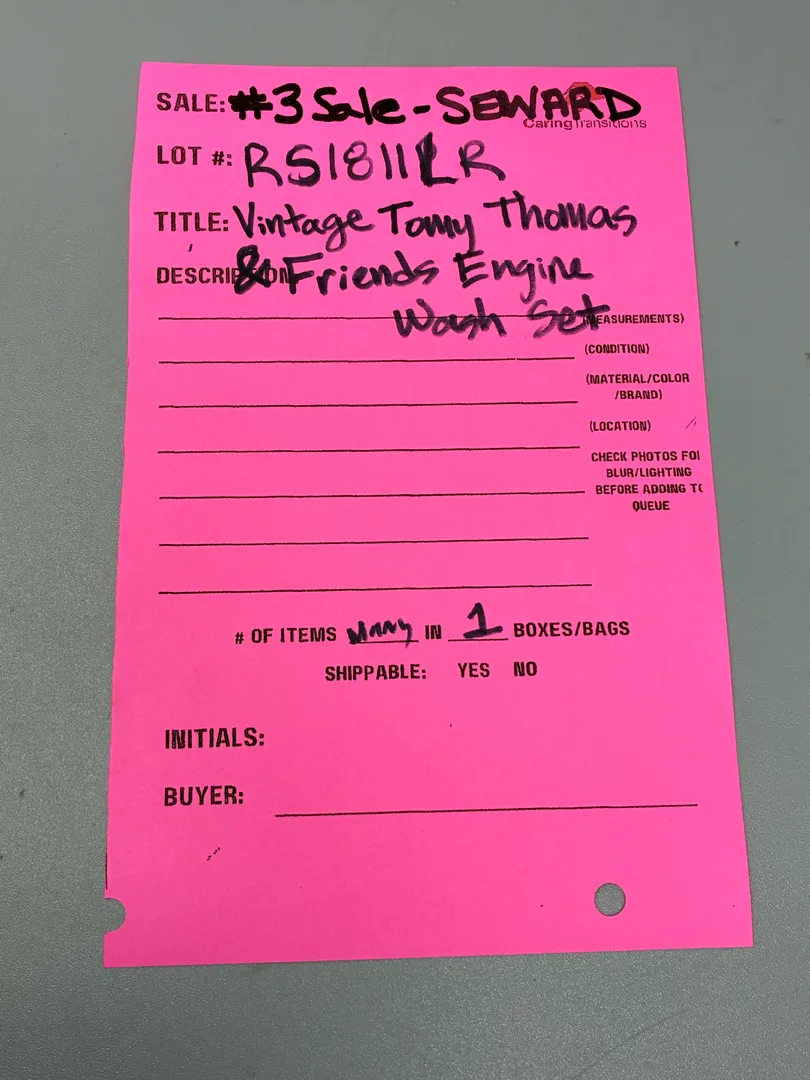 SALE: #3 Sale - SEWARD
CaringTransitions
LOT #: RS1811LR
TITLE: Vintage Tomy Thomas
DESCRIPTION & Friends Engine
Wash Set
(MEASUREMENTS)
(CONDITION)
(MATERIAL/COLOR
/BRAND)
(LOCATION)
CHECK PHOTOS FOR
BLUR/LIGHTING
BEFORE ADDING TO
QUEUE
# OF ITEMS Many IN 1 BOXES/BAGS
SHIPPABLE: YES NO
INITIALS:
BUYER: